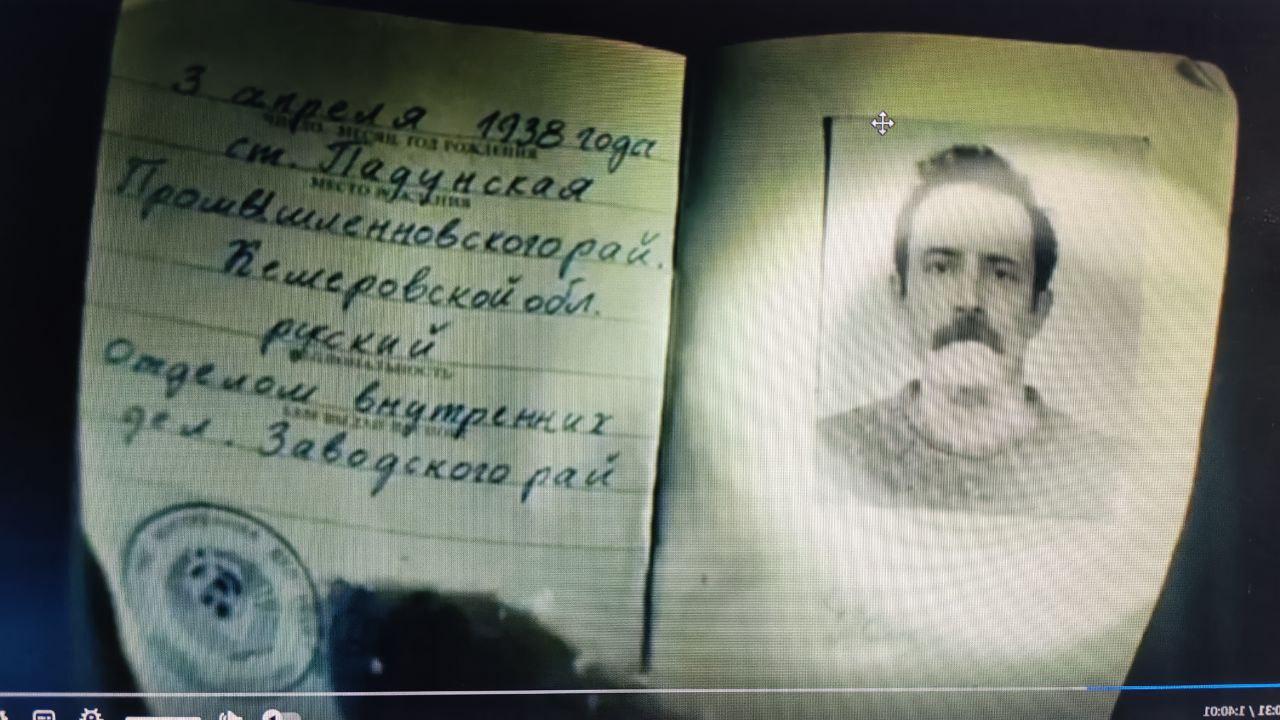 3 апреля 1938 года
ЧИСЛО, МЕСЯЦ, ГОД РОЖДЕНИЯ
ст. Падунская
МЕСТО РОЖДЕНИЯ
Промышленновского рай.
Кемеровской обл.
русский
НАЦИОНАЛЬНОСТЬ
Отделом внутренних
КЕМ ВЫДАН ПАСПОРТ
дел. Заводского рай
1:40:01